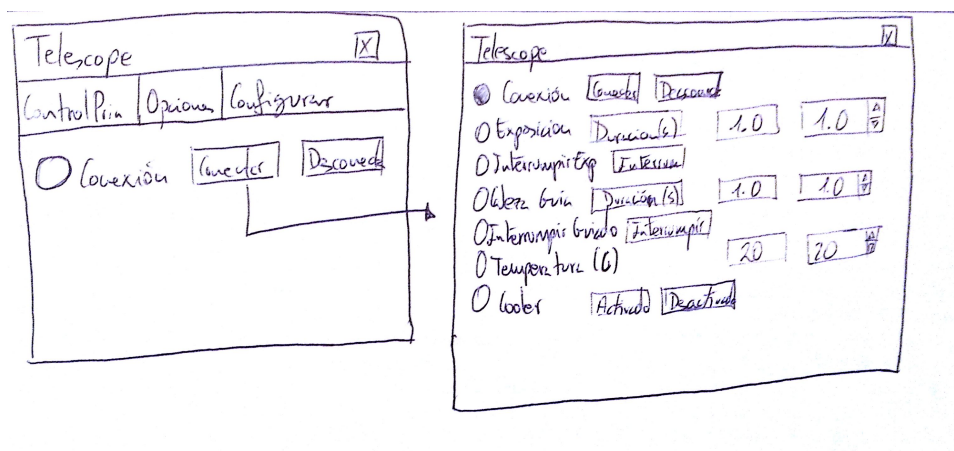 Telescope X
Control Prin Opciones Configurar
Conexión Conectar Desconecta
Telescope X
Conexión Conectar Desconect
Exposicion Duracion(s) 1.0 1.0
InterrumpirExp Interrum
Guia Duración(s) 1.0 1.0
Interrumpir Guiado Interrumpir
Temperatura (C) 20 20
Cooler Activado Desactivado